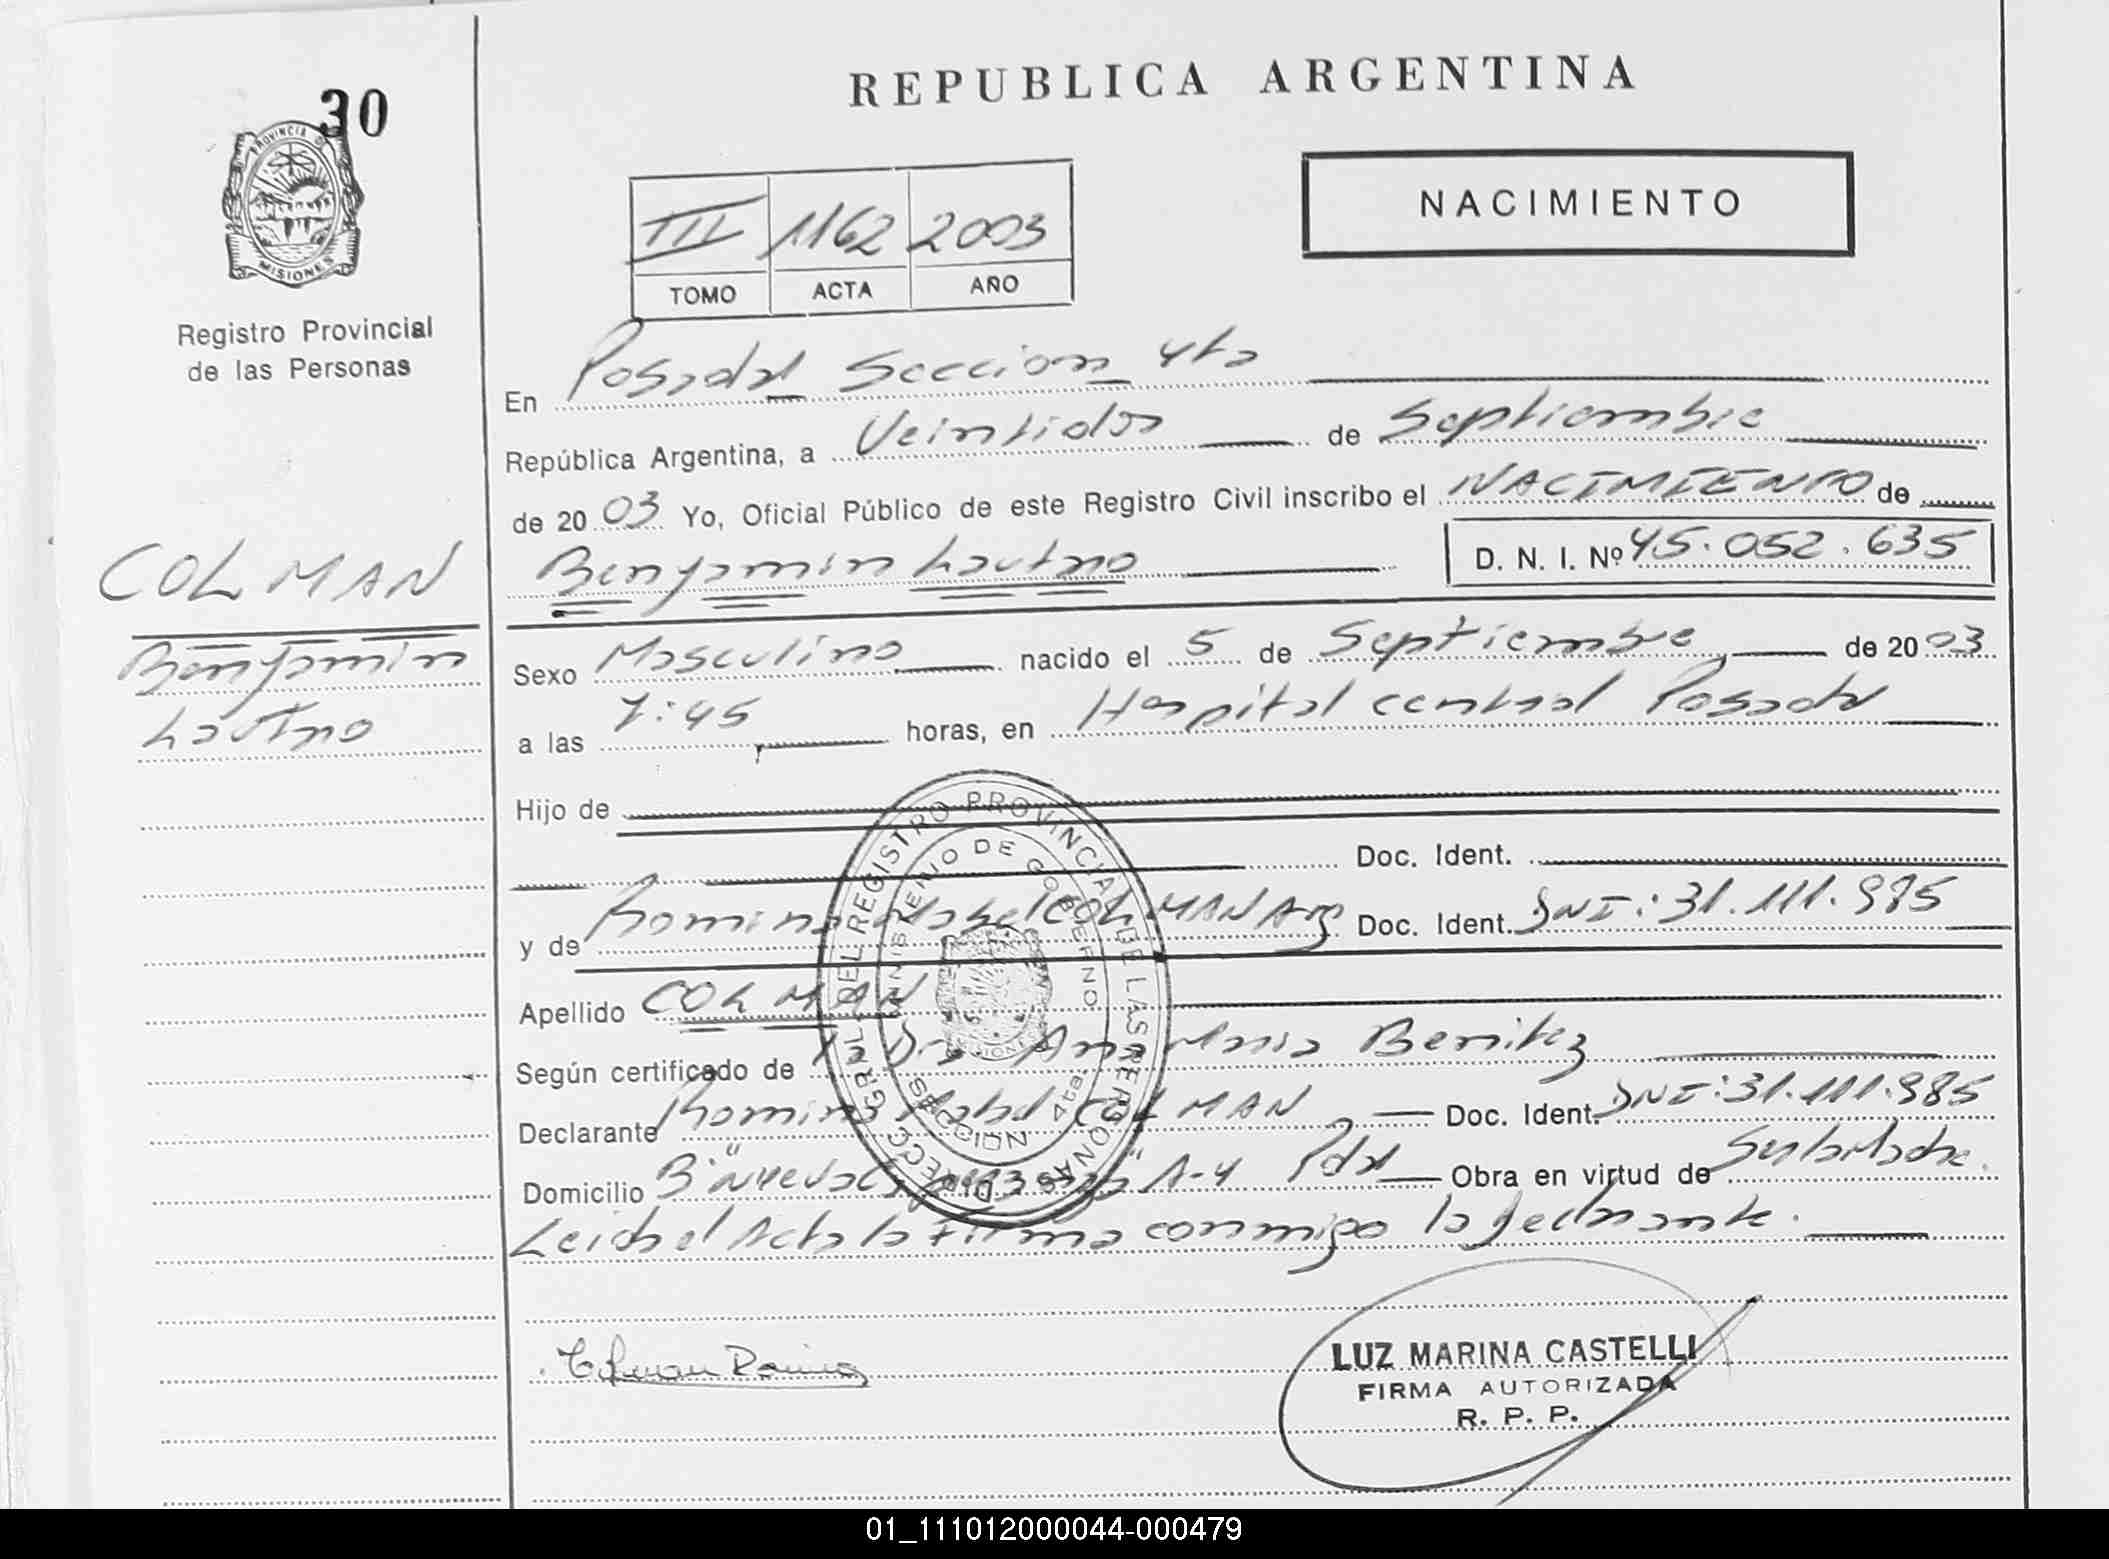 30
PROVINCIA DE
MISIONES
Registro Provincial
de las Personas
REPUBLICA ARGENTINA
III 1162 2003
TOMO ACTA AÑO
NACIMIENTO
En Posadas Seccion 4ta
República Argentina, a Veintidos de Septiembre
de 2003 Yo, Oficial Público de este Registro Civil inscribo el NACIMIENTO de
Benjamin Lautaro D. N. I. Nº 45.052.635
COLMAN
Benjamin
Lautaro
Sexo Masculino nacido el 5 de Septiembre de 2003
a las 7:45 horas, en Hospital central Posadas
Hijo de
Doc. Ident.
y de Romina Mabel COLMAN Arg. Doc. Ident. DNI: 31.111.985
Apellido COLMAN
Según certificado de la Dra Ana Maria Benitez
Declarante Romina Mabel COLMAN Doc. Ident. DNI: 31.111.985
Domicilio B° "Nueva A-4 Pdas Obra en virtud de Ser la Madre.
Leida el Acta la Firma conmigo la declarante.
DIRECC. GRAL. DEL REGISTRO PROVINCIAL DE LAS PERSONAS
MINISTERIO DE GOBIERNO
SECCION 4ta.
MISIONES
Colman Romina
LUZ MARINA CASTELLI
FIRMA AUTORIZADA
R. P. P.
01_111012000044-000479